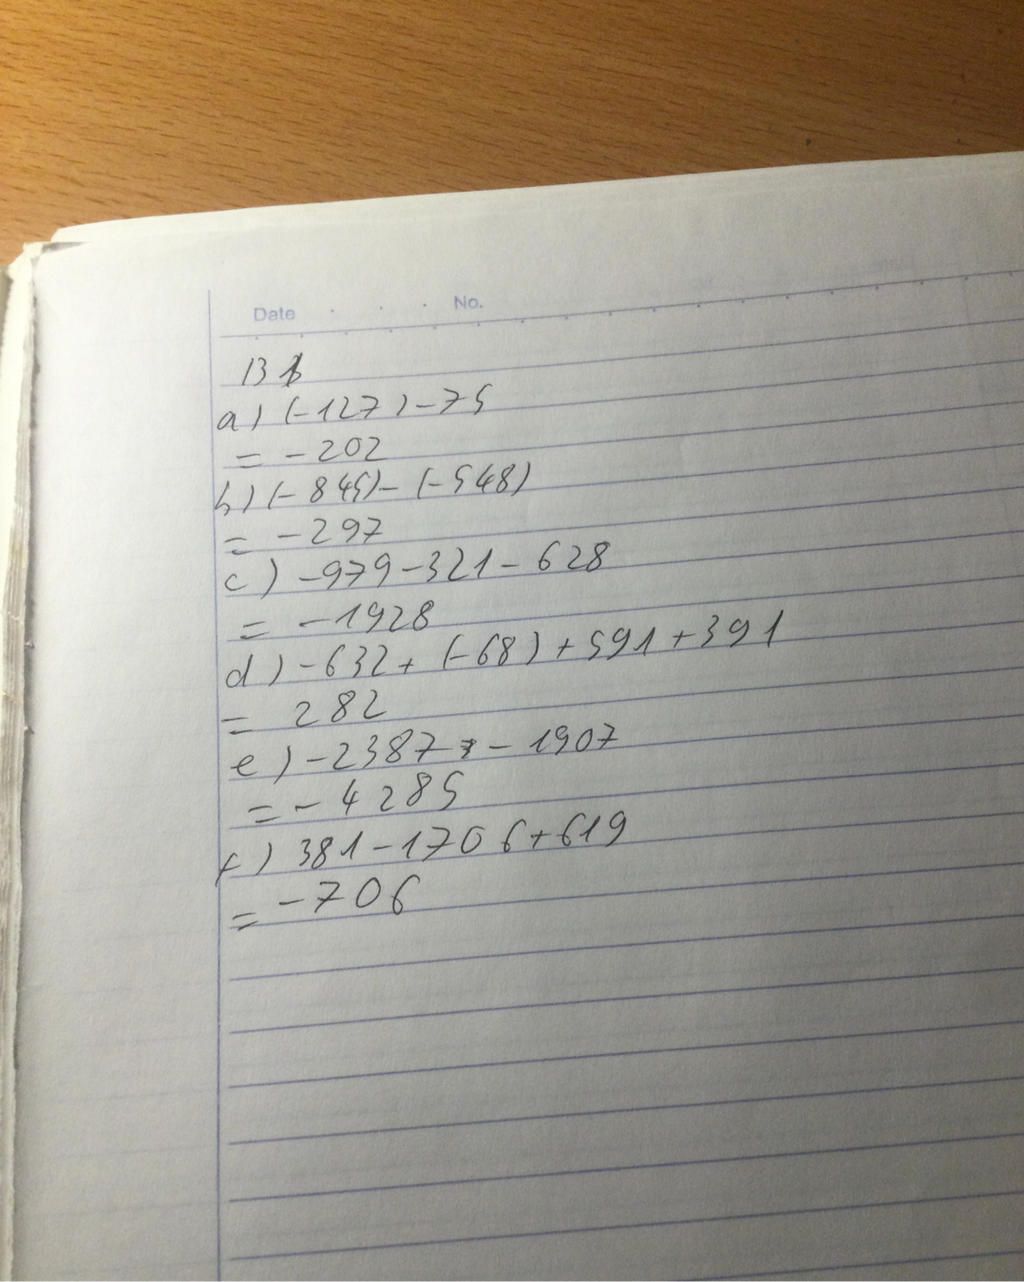 Date . . . No.
B1
a) (-127) - 75
= -202
b) (-845) - (-548)
= -297
c) -979 - 321 - 628
= -1928
d) -632 + (-68) + 591 + 391
= 282
e) -2387 - 1907
= -4285
f) 381 - 1706 + 619
= -706